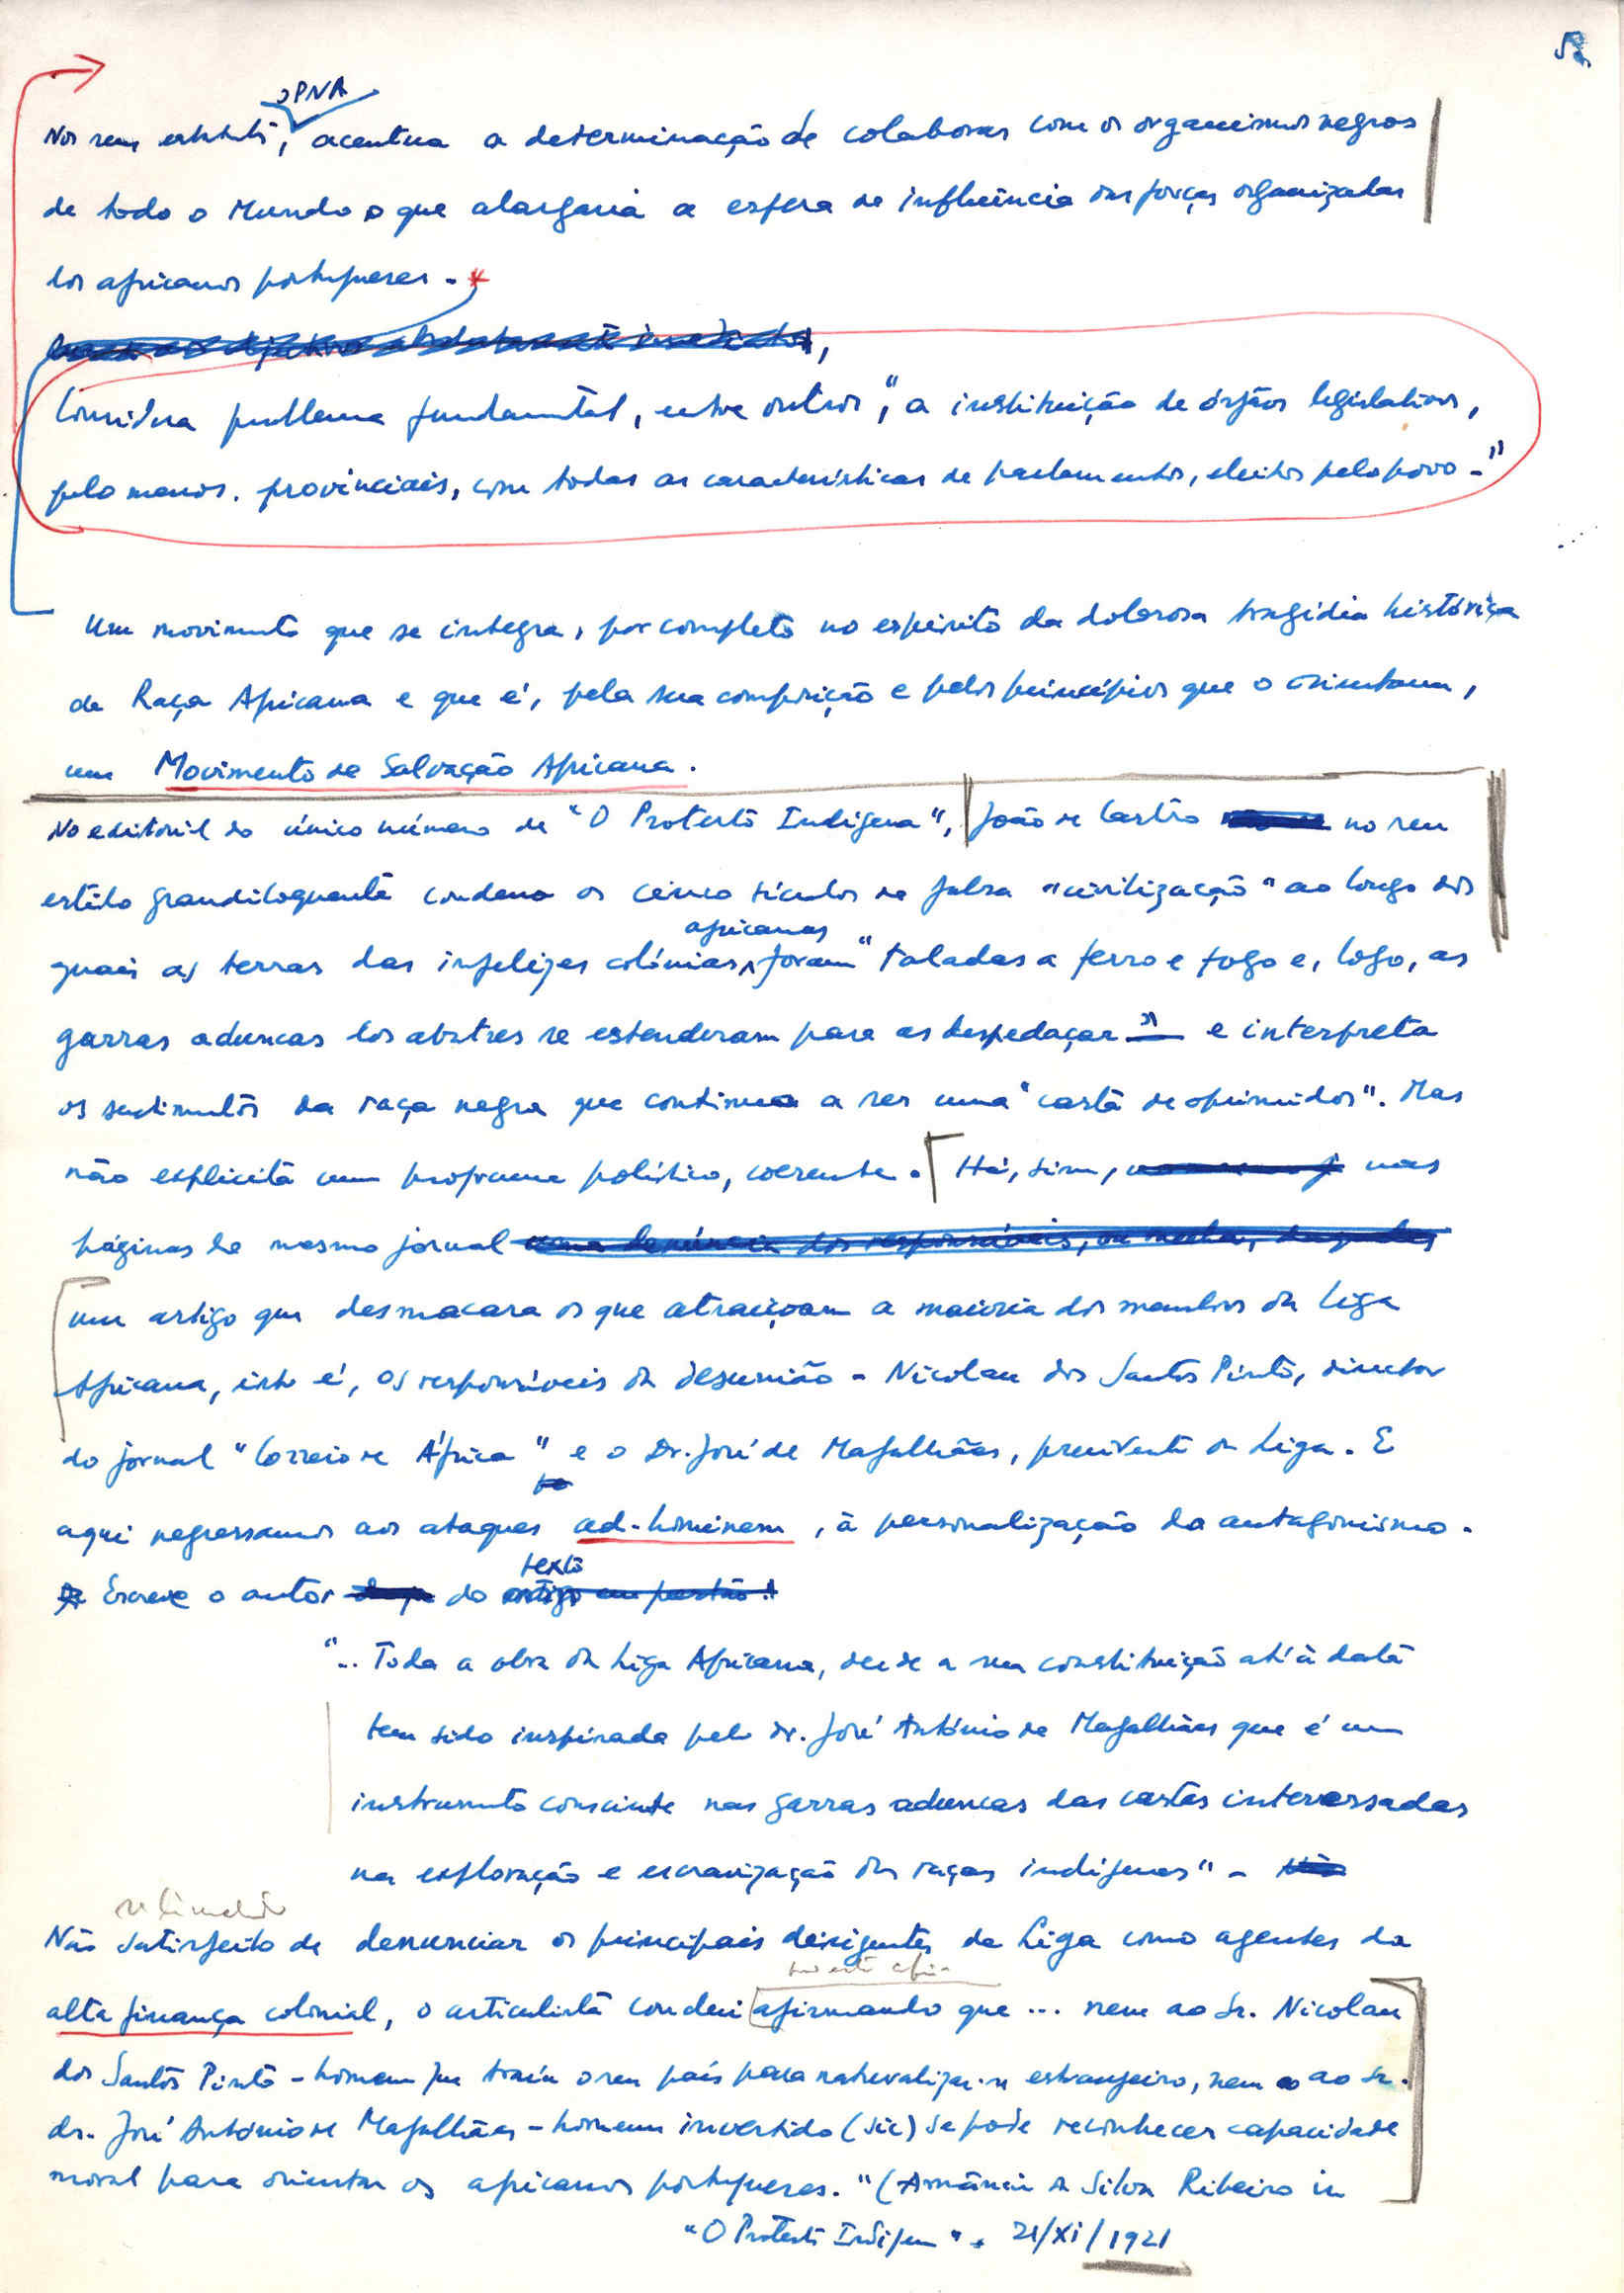 52
o PNA
Nos seus estatutos, acentua a determinação de colaborar com os organismos negros
de todo o Mundo o que alargaria a esfera de influência das forças organizadas
dos africanos portugueses. *
Considera problema fundamental, entre outros, "a instituição de órgãos legislativos,
pelo menos. provinciais, com todas as características de parlamentos, eleitos pelo povo."
Um movimento que se integra, por completo no espírito da dolorosa tragédia histórica
da Raça Africana e que é, pela sua composição e pelos princípios que o orientam,
um Movimento de Salvação Africana.
No editorial do único número de "O Protesto Indígena", João de Castro no seu
estilo grandiloquente condena os cinco séculos de falsa "civilização" ao longo dos
africanas
quais as terras das infelizes colónias foram "taladas a ferro e fogo e, logo, as
garras aduncas dos abutres se estenderam para as despedaçar" e interpreta
os sentimentos da raça negra que continua a ser uma "casta de oprimidos". Mas
não explicita um programa político, coerente. Há, sim, nas
páginas do mesmo jornal uma denúncia dos responsáveis, ou melhor, daqueles
um artigo que desmacara os que atraiçoam a maioria dos membros da Liga
Africana, isto é, os responsáveis da desunião - Nicolau dos Santos Pinto, director
do jornal "Correio de África" e o Dr. José de Magalhães, presidente da Liga. E
aqui regressamos aos ataques ad-hominem, à personalização do antagonismo.
texto
Escreve o autor do artigo em questão:
"... Toda a obra da Liga Africana, desde a sua constituição até à data
tem sido inspirada pelo dr. José António de Magalhães que é um
instrumento consciente nas garras aduncas das castas interessadas
na exploração e escravização das raças indígenas" -
Não satisfeito de denunciar os principais dirigentes da Liga como agentes da
alta finança colonial, o articulista conclui afirmando que ... nem ao Sr. Nicolau
dos Santos Pinto - homem que traiu o seu país para naturalizar-se estrangeiro, nem ao Sr.
dr. José António de Magalhães - homem invertido (sic) se pode reconhecer capacidade
moral para orientar os africanos portugueses." (Amâncio da Silva Ribeiro in
"O Protesto Indígena". 21/XI/1921